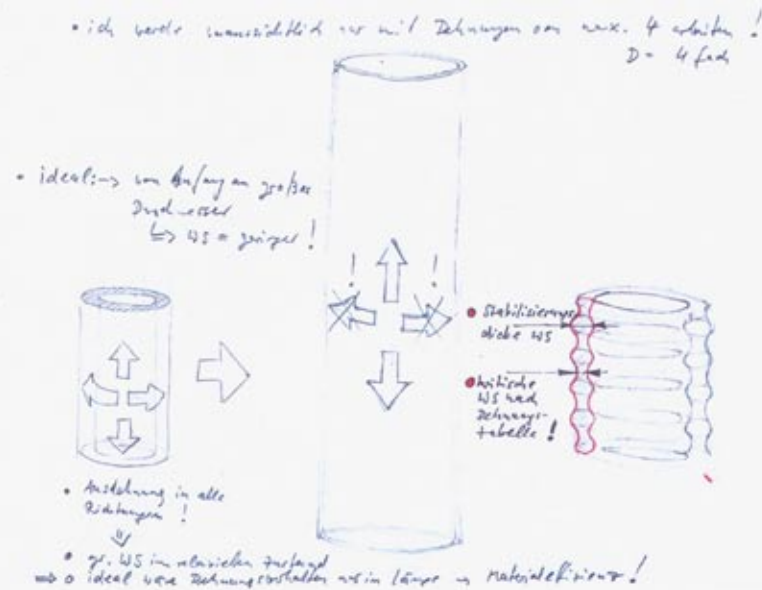 • ich werde voraussichtlich nur mit Dehnungen von max. 4 arbeiten !
D = 4 fach
• ideal: → von Anfang an großer
Durchmesser
↳ WS = geringer !
! !
• Stabilisierungs
dicke WS
• kritische
WS nach
Dehnungs-
tabelle !
• Ausdehnung in alle
Richtungen !
• gr. WS im relaxierten Zustand
⇒ • ideal wäre Dehnungsverhalten nur in Länge Materialeffizienz !